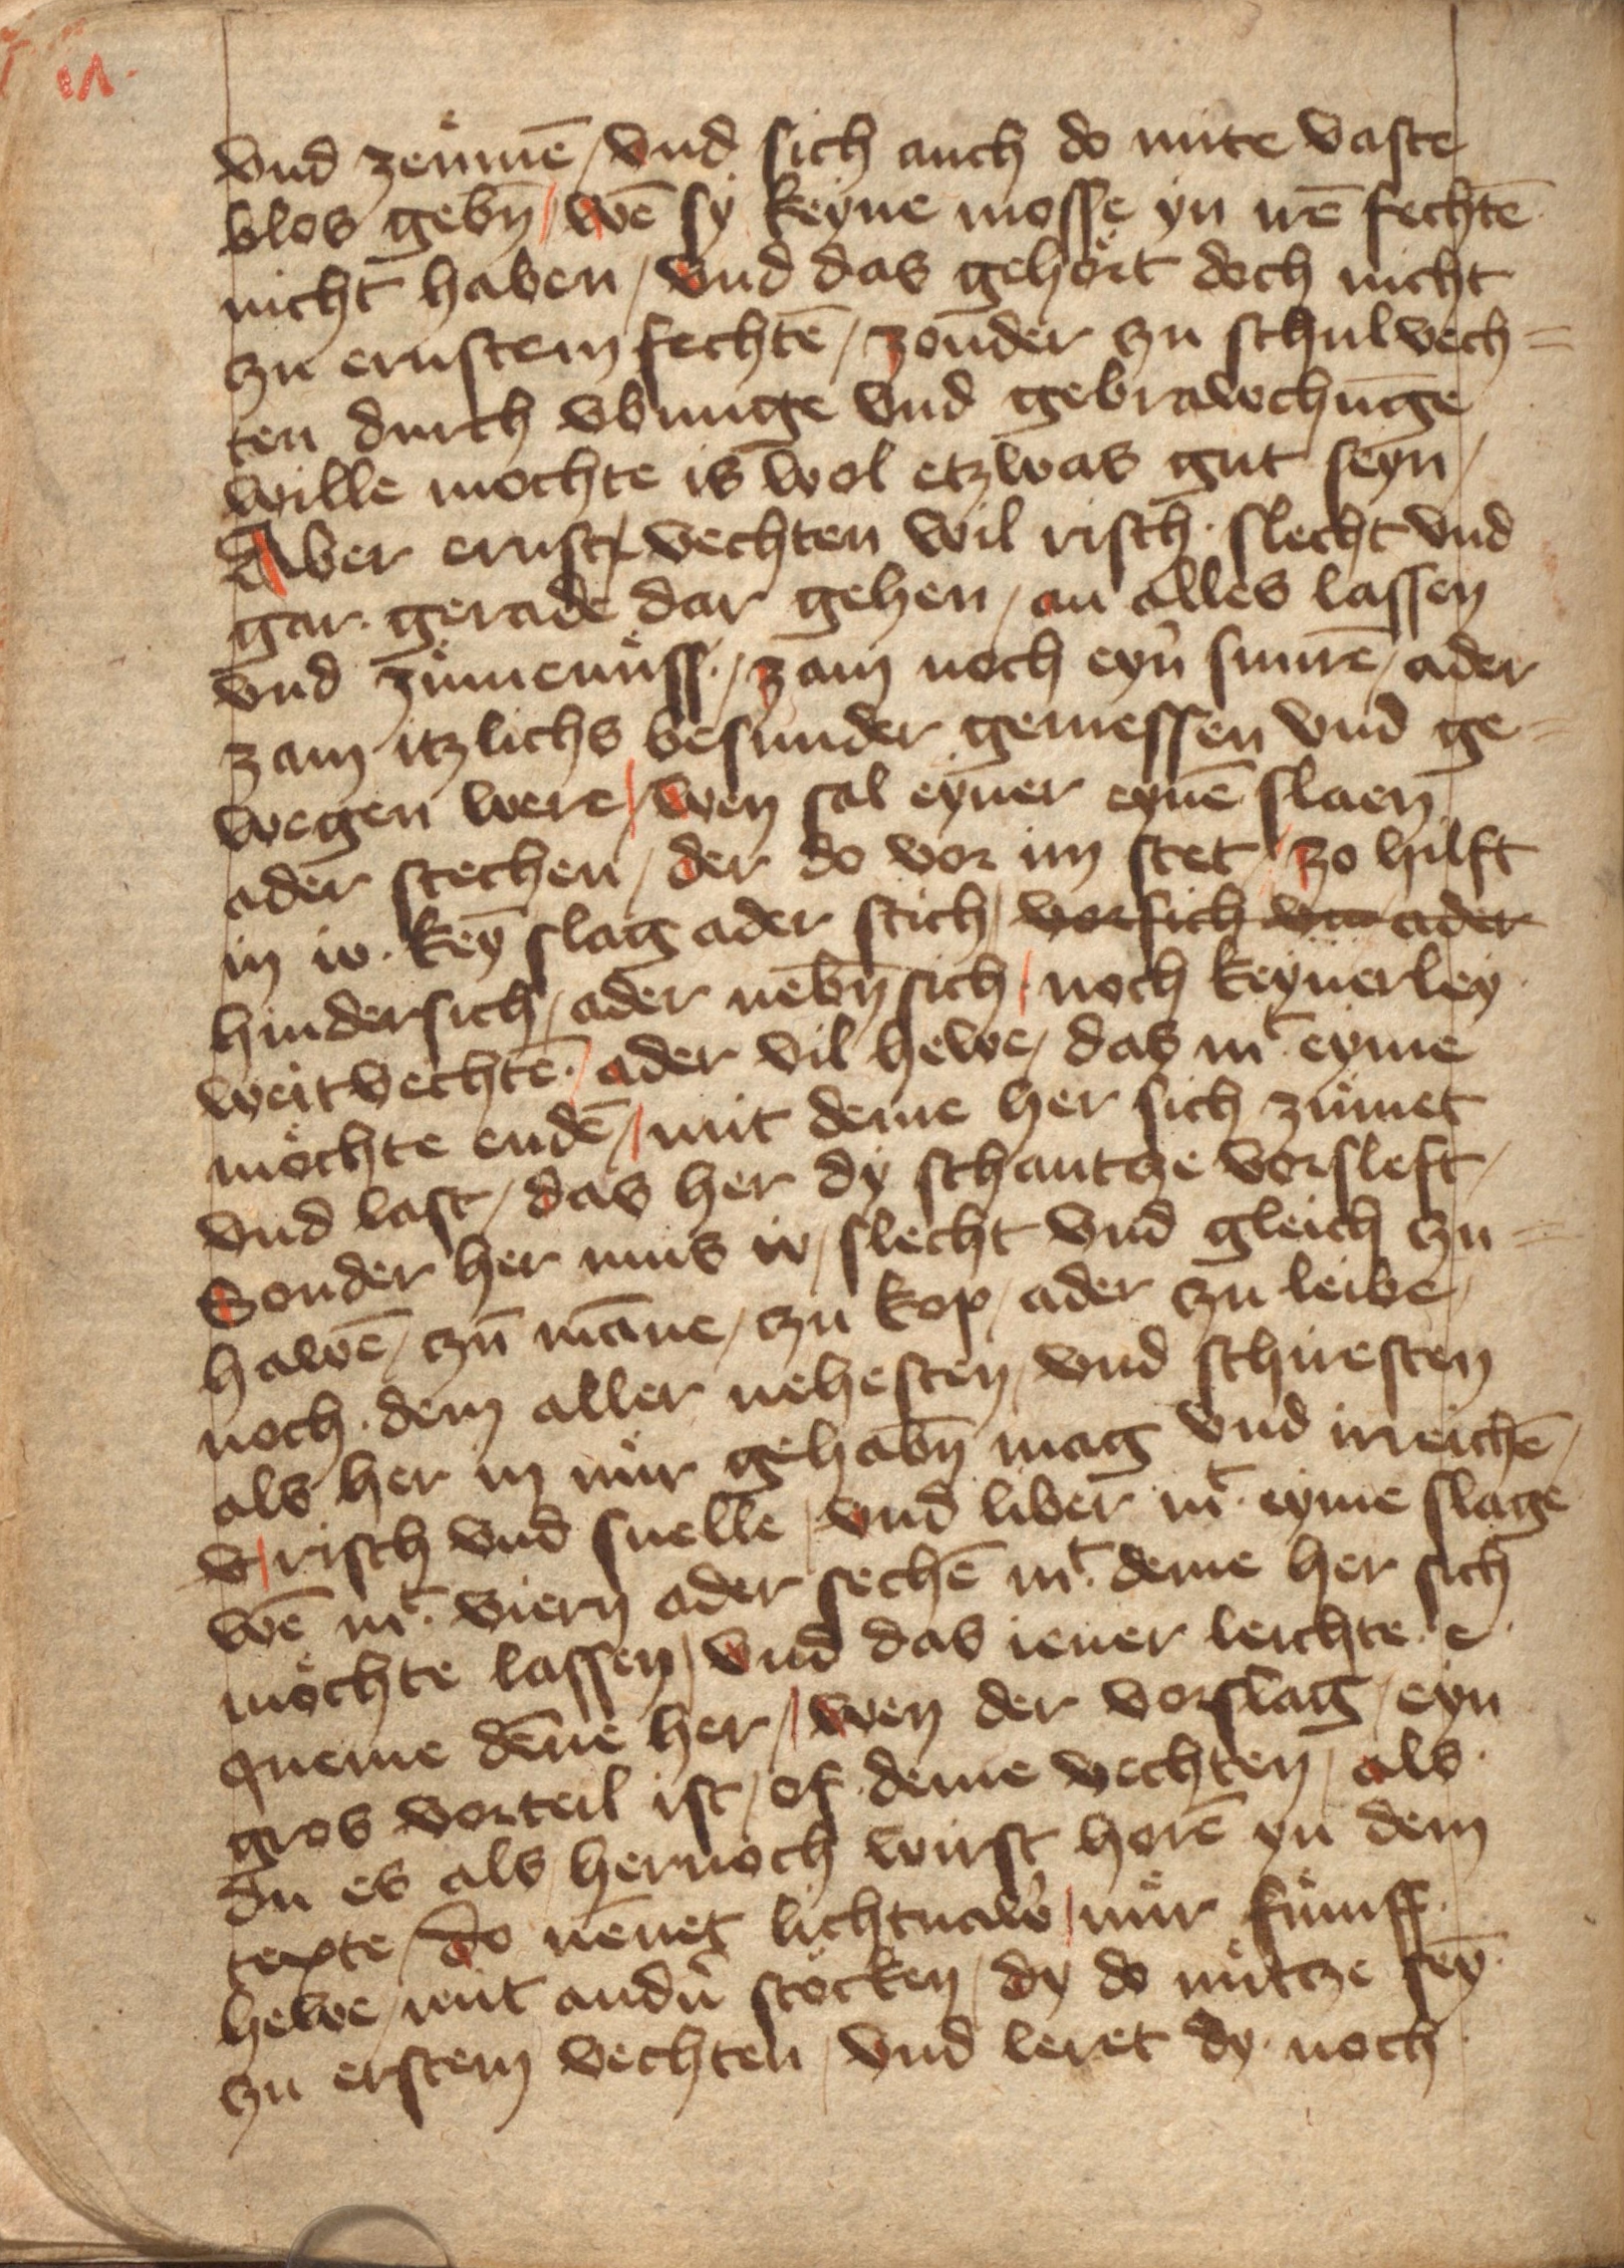 vnd zeümē / vnd sich auch do mite vaste
blos gebn̄ / wē sy keyne mosse yn irē fechtē
nicht haben / vnd das gehört doch nicht
zu ernstem fechtē / zonder zu schulvech=
ten durch vbunge vnd gebrawchunge
wille mochte is wol etzwas gut seyn /
Aber ernst vechten wil risch · slecht vnd
gar · gerade dar gehen / an alles lassen
vnd zümenüss · / zam noch eyn̉ snürē / ader
zam itzlichs besunder gemessen vnd ge=
wegen were / wen sal eyner eynē slaen
ader stechen / der do vor im stet / zo hilft
in io · key̅ slag ader stich / vorsich ader
hindersich / ader nebn̄ sich / noch keynerley
weitvechtē · ader vil hewe / das mt eyme
möchte endē / mit deme her sich zümet
vnd last / das her dy schantze vorsleft /
Sonder her mus io / slecht vnd gleich zu=
hawē / zū mãne / zu kop / ader zu leibe /
noch · dem aller nehesten / vnd schiresten
als her in nür gehabn̄ mag vnd irreichē /
v risch vnd snelle / vnd liber mt · eyme slage
wē mt · viern ader sechē mt · deme her sich
möchte lassen / vnd das iener leichte · e ·
queme dēne her / wen der vorslag / eyn
gros vorteil ist / of deme vechten / als ·
du es als / hernoch wirst horē yn dem
texte / do nēnet lichtnaw̉ / nür fümff ·
hewe / mit andn̉ stöcken / dy do nütze sey̅ ·
zu erstem vechten / vnd leret dy noch